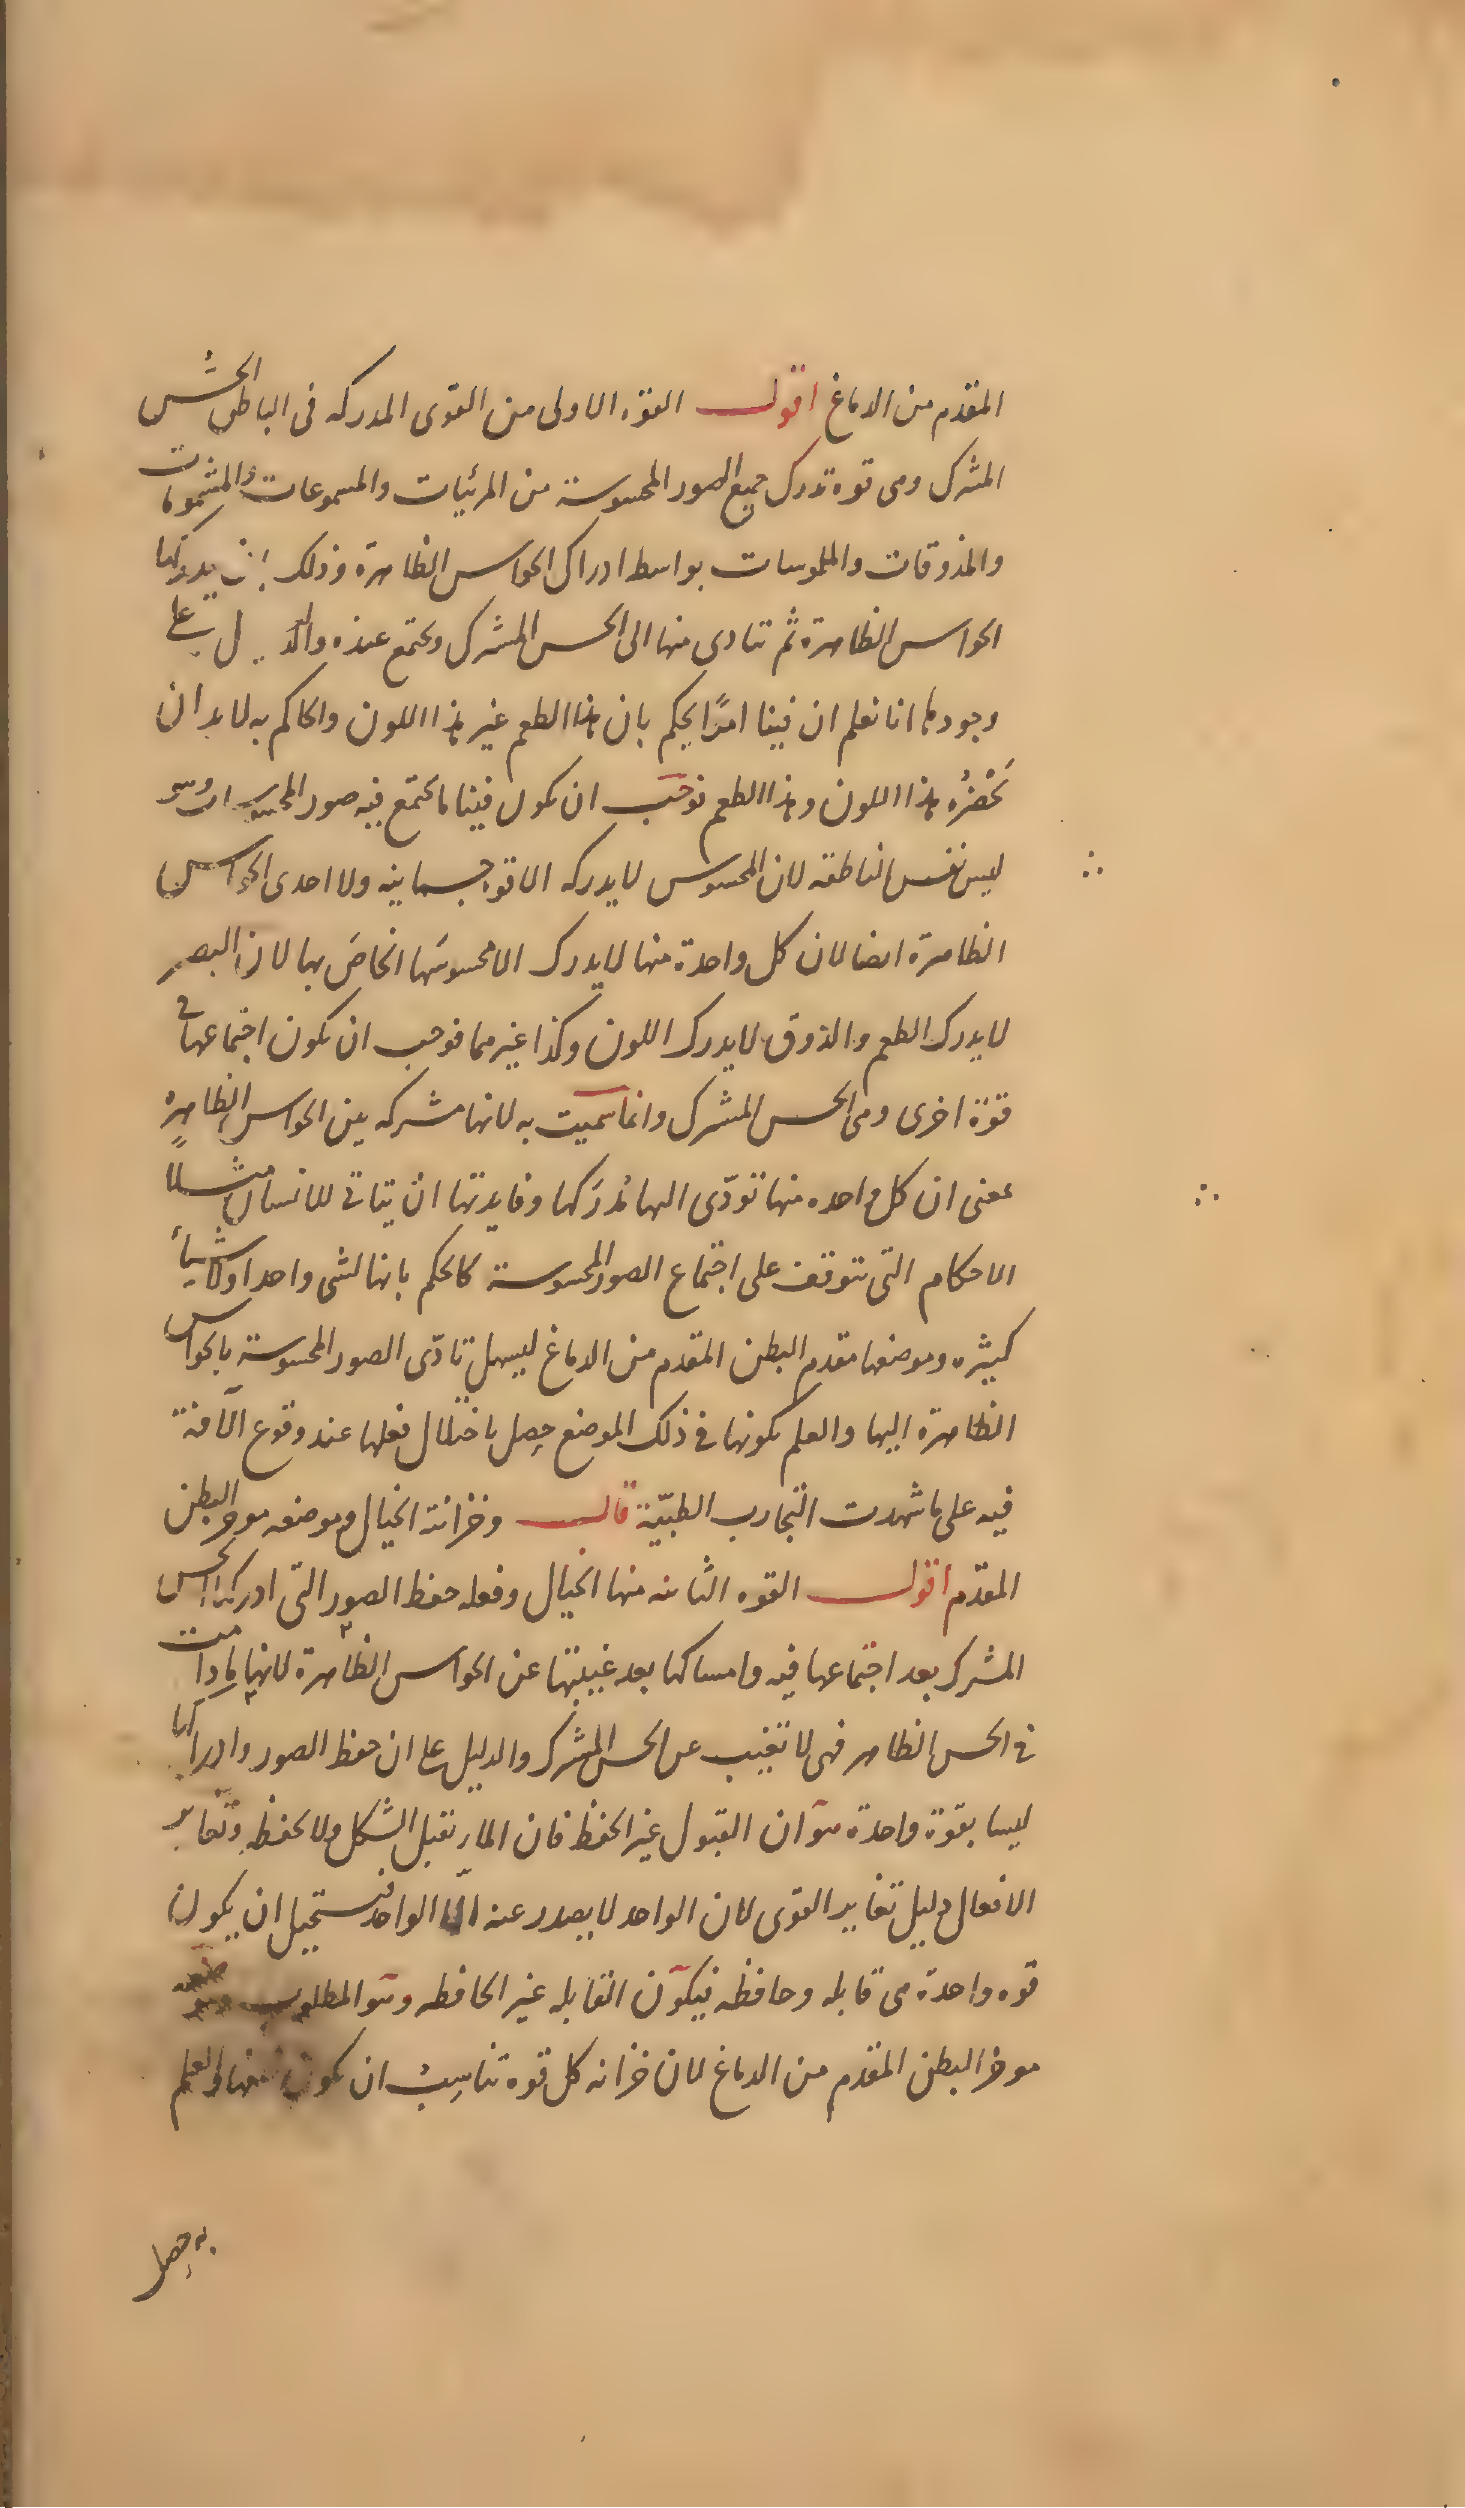 المقدم من الدماغ اقول القوة الاولى من القوى المدركه فى الباطن الحس
المشترك وهى قوة تدرك جميع الصور المحسوسة من المرئيات والمسموعات والمشمومات
والمذوقات والملموسات بواسطه ادراك الحواس الظاهرة وذلك بان يدركها
الحواس الظاهرة ثم تتادى منها الى الحس المشترك ويجتمع عنده والدليل على
وجودها انا نعلم ان فينا امرًا يحكم بان هذا الطعم غير هذا اللون والحاكم به لابد ان
يَحْضرُه هذا اللون وهذا الطعم فوجب ان يكون فينا ما يجتمع فيه صور المحسوسات
ليس نفس الناطقه لان المحسوس لا يدركه الا قوة جسمانيه ولا احدى الحواس
الظاهرة ايضا لان كل واحدة منها لا يدرك الا محسوسَها الخاصَ بها لان البصر
لا يدرك الطعم والذوق لا يدرك اللون وكذا غيرهما فوجب ان يكون اجتماعها فى
قوّة اخرى وهى الحس المشترك وانما سميت به لانها مشتركه بين الحواس الظاهره
بمعنى ان كل واحده منها تودّى اليها مُدرَكها وفايدتها ان يتاتى للانسان مثلاً
الاحكام التى تتوقف على اجتماع الصور المحسوسة كالحكم بانها لشى واحد او لاشياء
كثيره وموضعها مقدم البطن المقدم من الدماغ ليسهل تادّى الصور المحسوسة بالحواس
الظاهرة اليها والعلم بكونها فى ذلك الموضع حصل باختلال فعلها عند وقوع الآفة
فيه على ما شهدت التجارب الطبيّة قال وخزانته الخيال وموضعه موخر البطن
المقدّم اقول القوه الثانيه منها الخيال وفعله حفظ الصور التى ادركها الحس
المشترك بعد اجتماعها فيه وامساكها بعد غيبتها عن الحواس الظاهرة لانها ما دامت
فى الحس الظاهر فهى لا تغيب عن الحس المشترك والدليل على ان حفظ الصور وادراكها
ليسا بقوّة واحدة هو ان القبول غير الحفظ فان الماء يقبل الشكل ولا يحفظه وتغاير
الافعال دليل تغاير القوى لان الواحد لا يصدر عنه الّا الواحد فيستحيل ان يكون
قوه واحدة هى قابله وحافظه فيكون القابله غير الحافظه وهو المطلوب
موخر البطن المقدم من الدماغ لان خزانه كل قوة تناسب ان يكون خلفها والعلم
به حصل